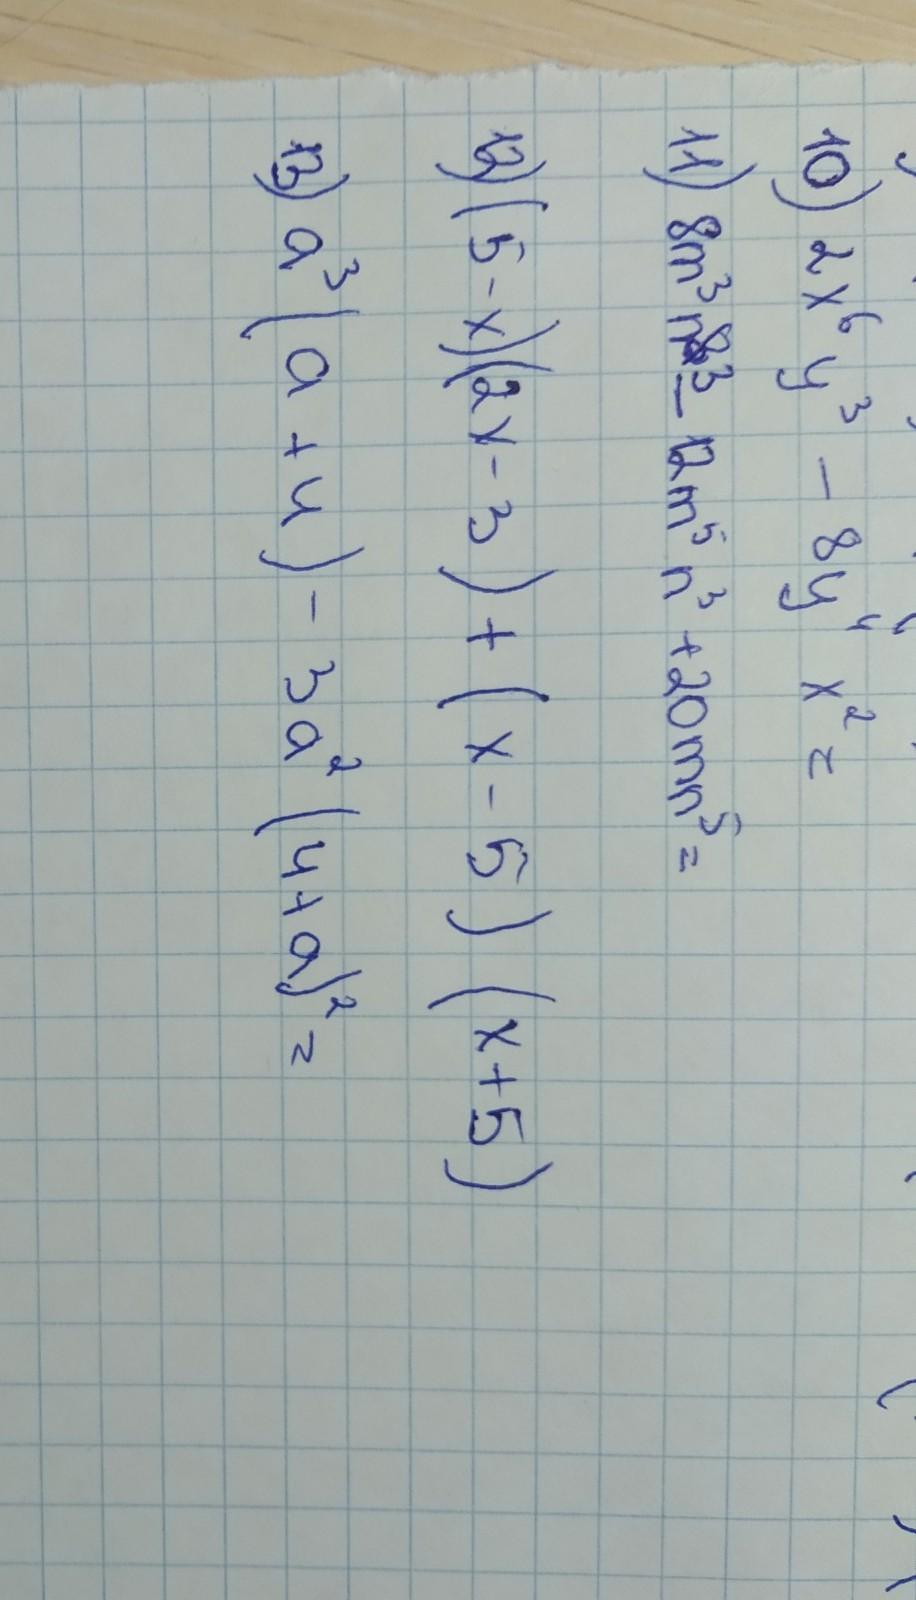 10) 2x⁶y³ - 8y⁴x² =
11) 8m³n³ - 12m⁵n³ + 20mn⁵ =
12) (5-x)(2x-3) + (x-5)(x+5)
13) a³(a+4) - 3a²(4+a)² =